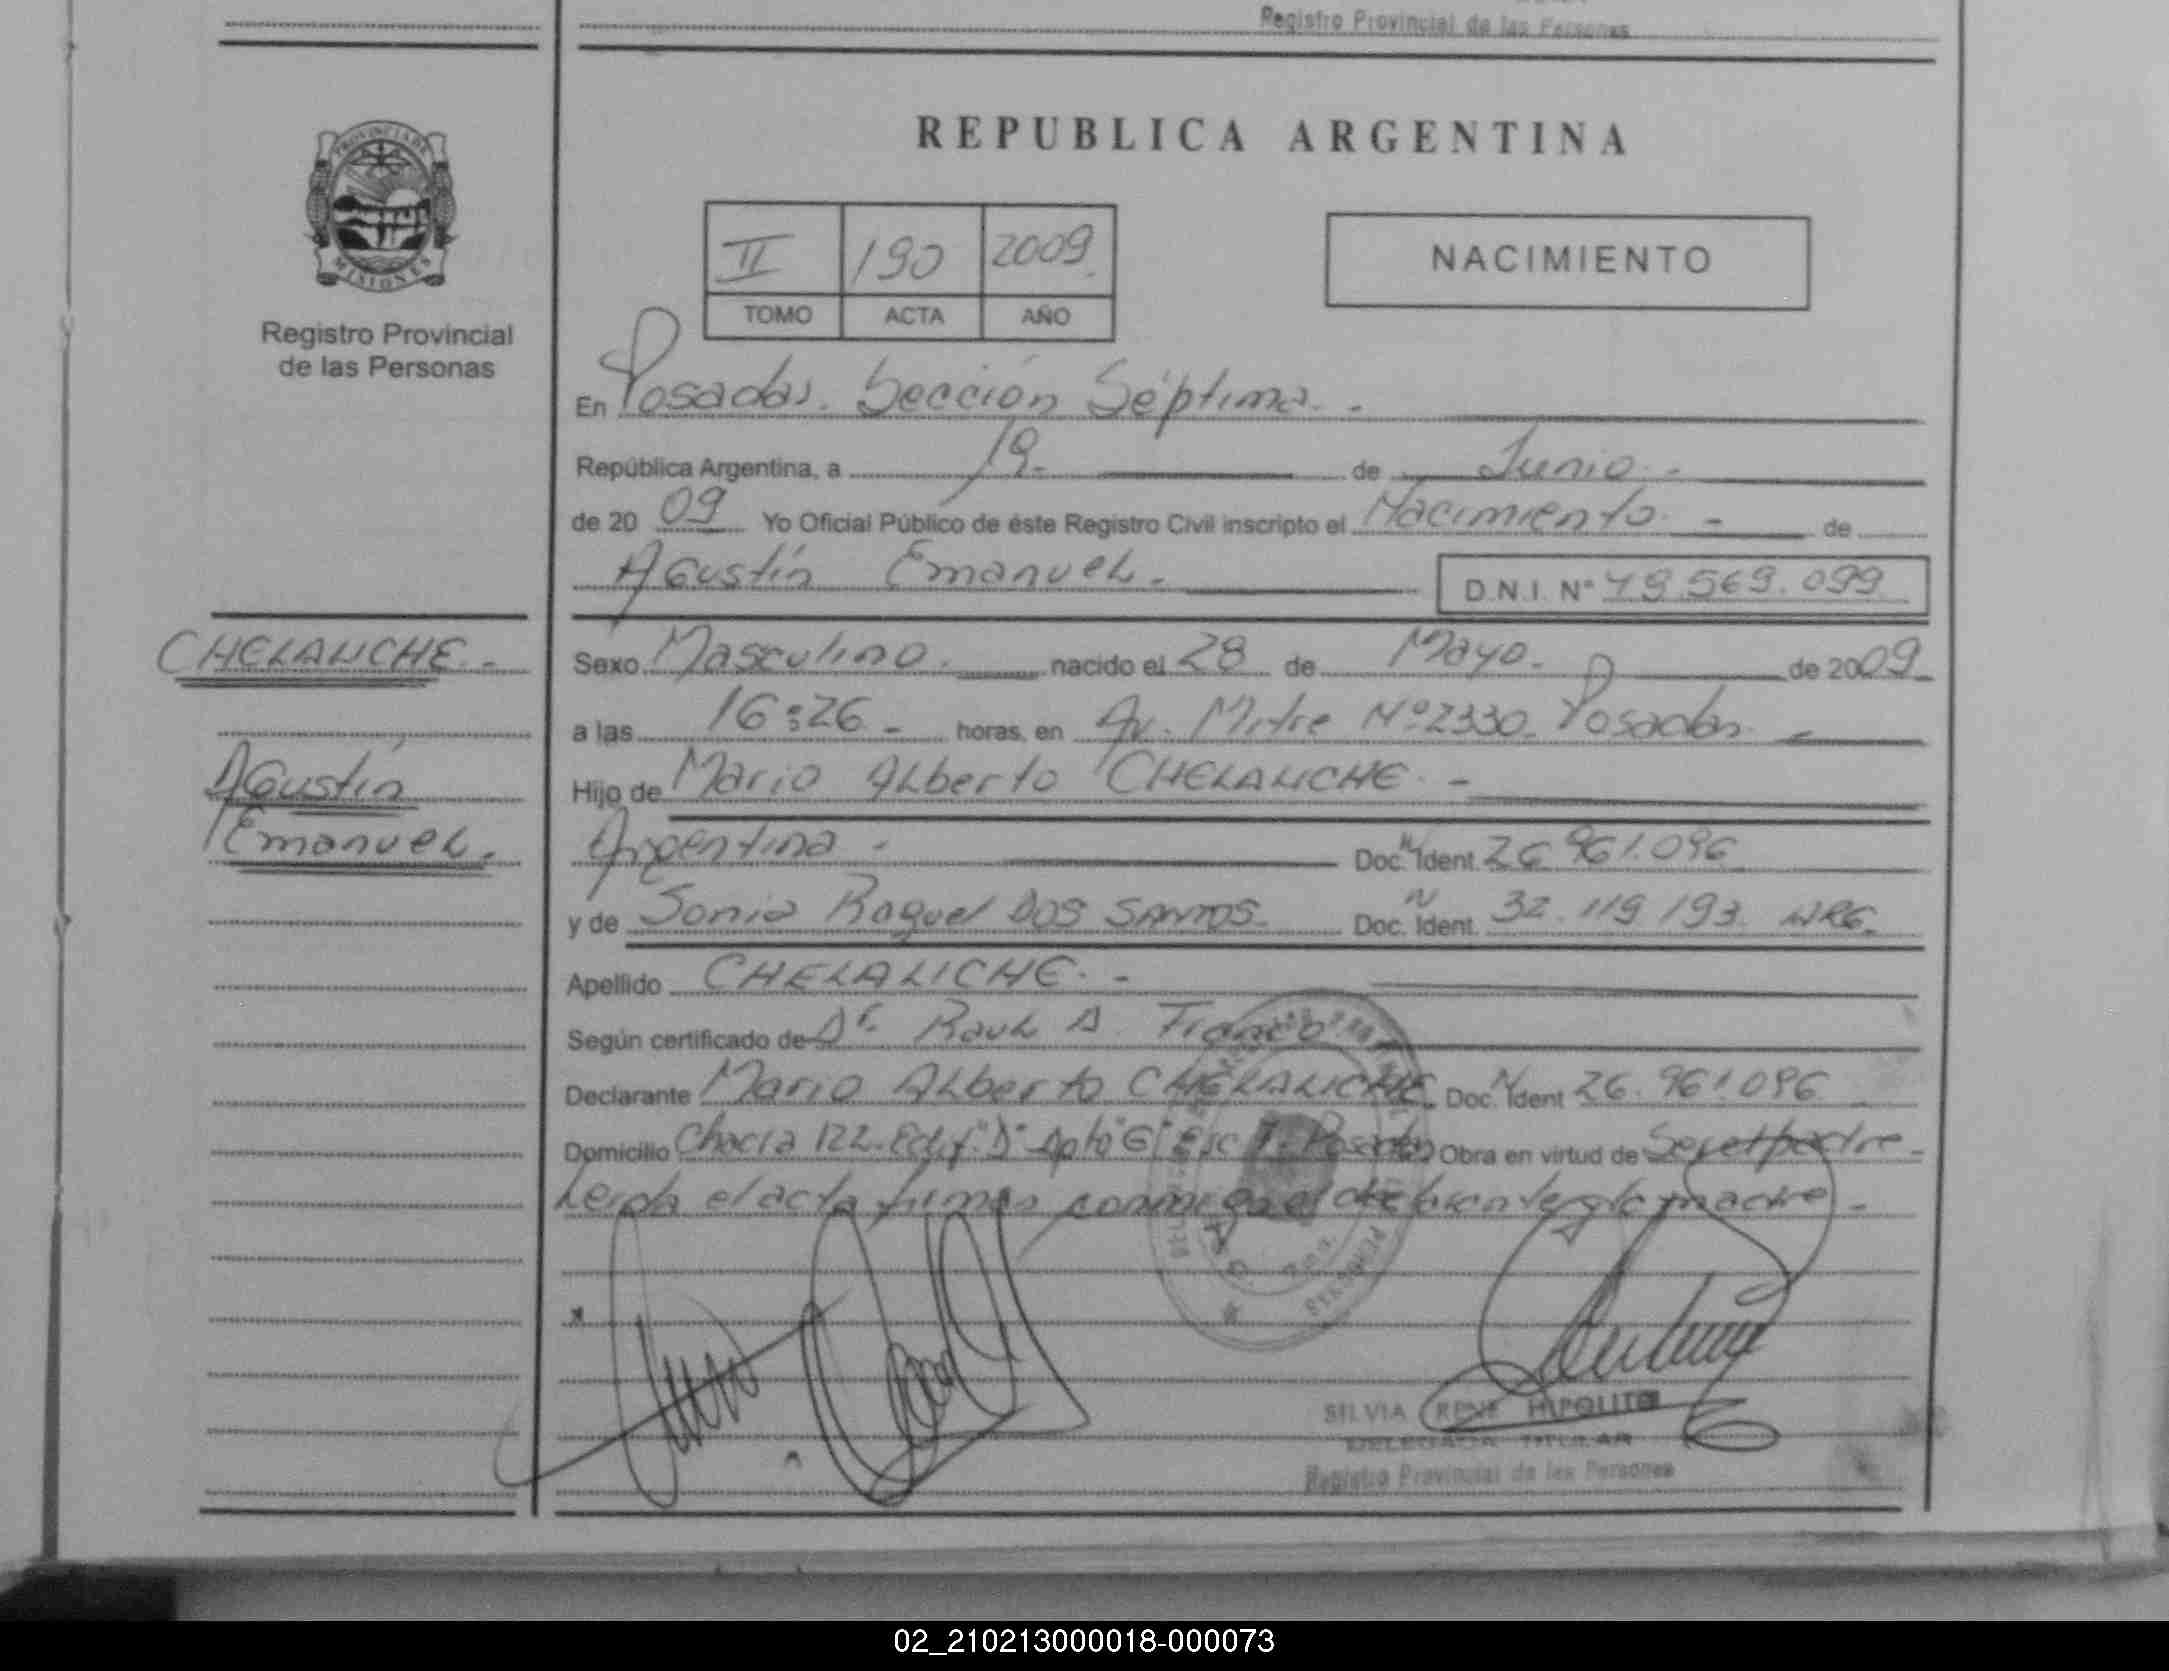 Registro Provincial de las Personas
REPUBLICA ARGENTINA
PROVINCIA DE
MISIONES
Registro Provincial
de las Personas
II 190 2009
TOMO ACTA AÑO
NACIMIENTO
En Posadas. Sección Séptima. -
República Argentina, a 19 - de Junio. -
de 20 09 Yo Oficial Público de éste Registro Civil inscripto el Nacimiento. - de
Agustín Emanuel. - D.N.I. Nº 49.569.099
CHELALICHE. -
Agustín
Emanuel.
Sexo Masculino. nacido el 28 de Mayo. de 2009
a las 16:26 - horas, en Av. Mitre Nº 2330. Posadas. -
Hijo de Mario Alberto CHELALICHE. -
Argentina. - Doc. Ident. 26.961.096
y de Sonia Raquel DOS SANTOS. Doc. Ident. 32.119.193.
Apellido CHELALICHE. -
Según certificado de Dr. Raul A. Franco
Declarante Mario Alberto CHELALICHE. Doc. Ident 26.961.096
Domicilio Chacra 122. Edif. "D" Apto "G" Esc Posadas Obra en virtud de Ser el padre -
Leida el acta firman conmigo el declarante y la madre. -
SILVIA RENE HIPOLITO
DELEGADA TITULAR
Registro Provincial de las Personas
02_210213000018-000073